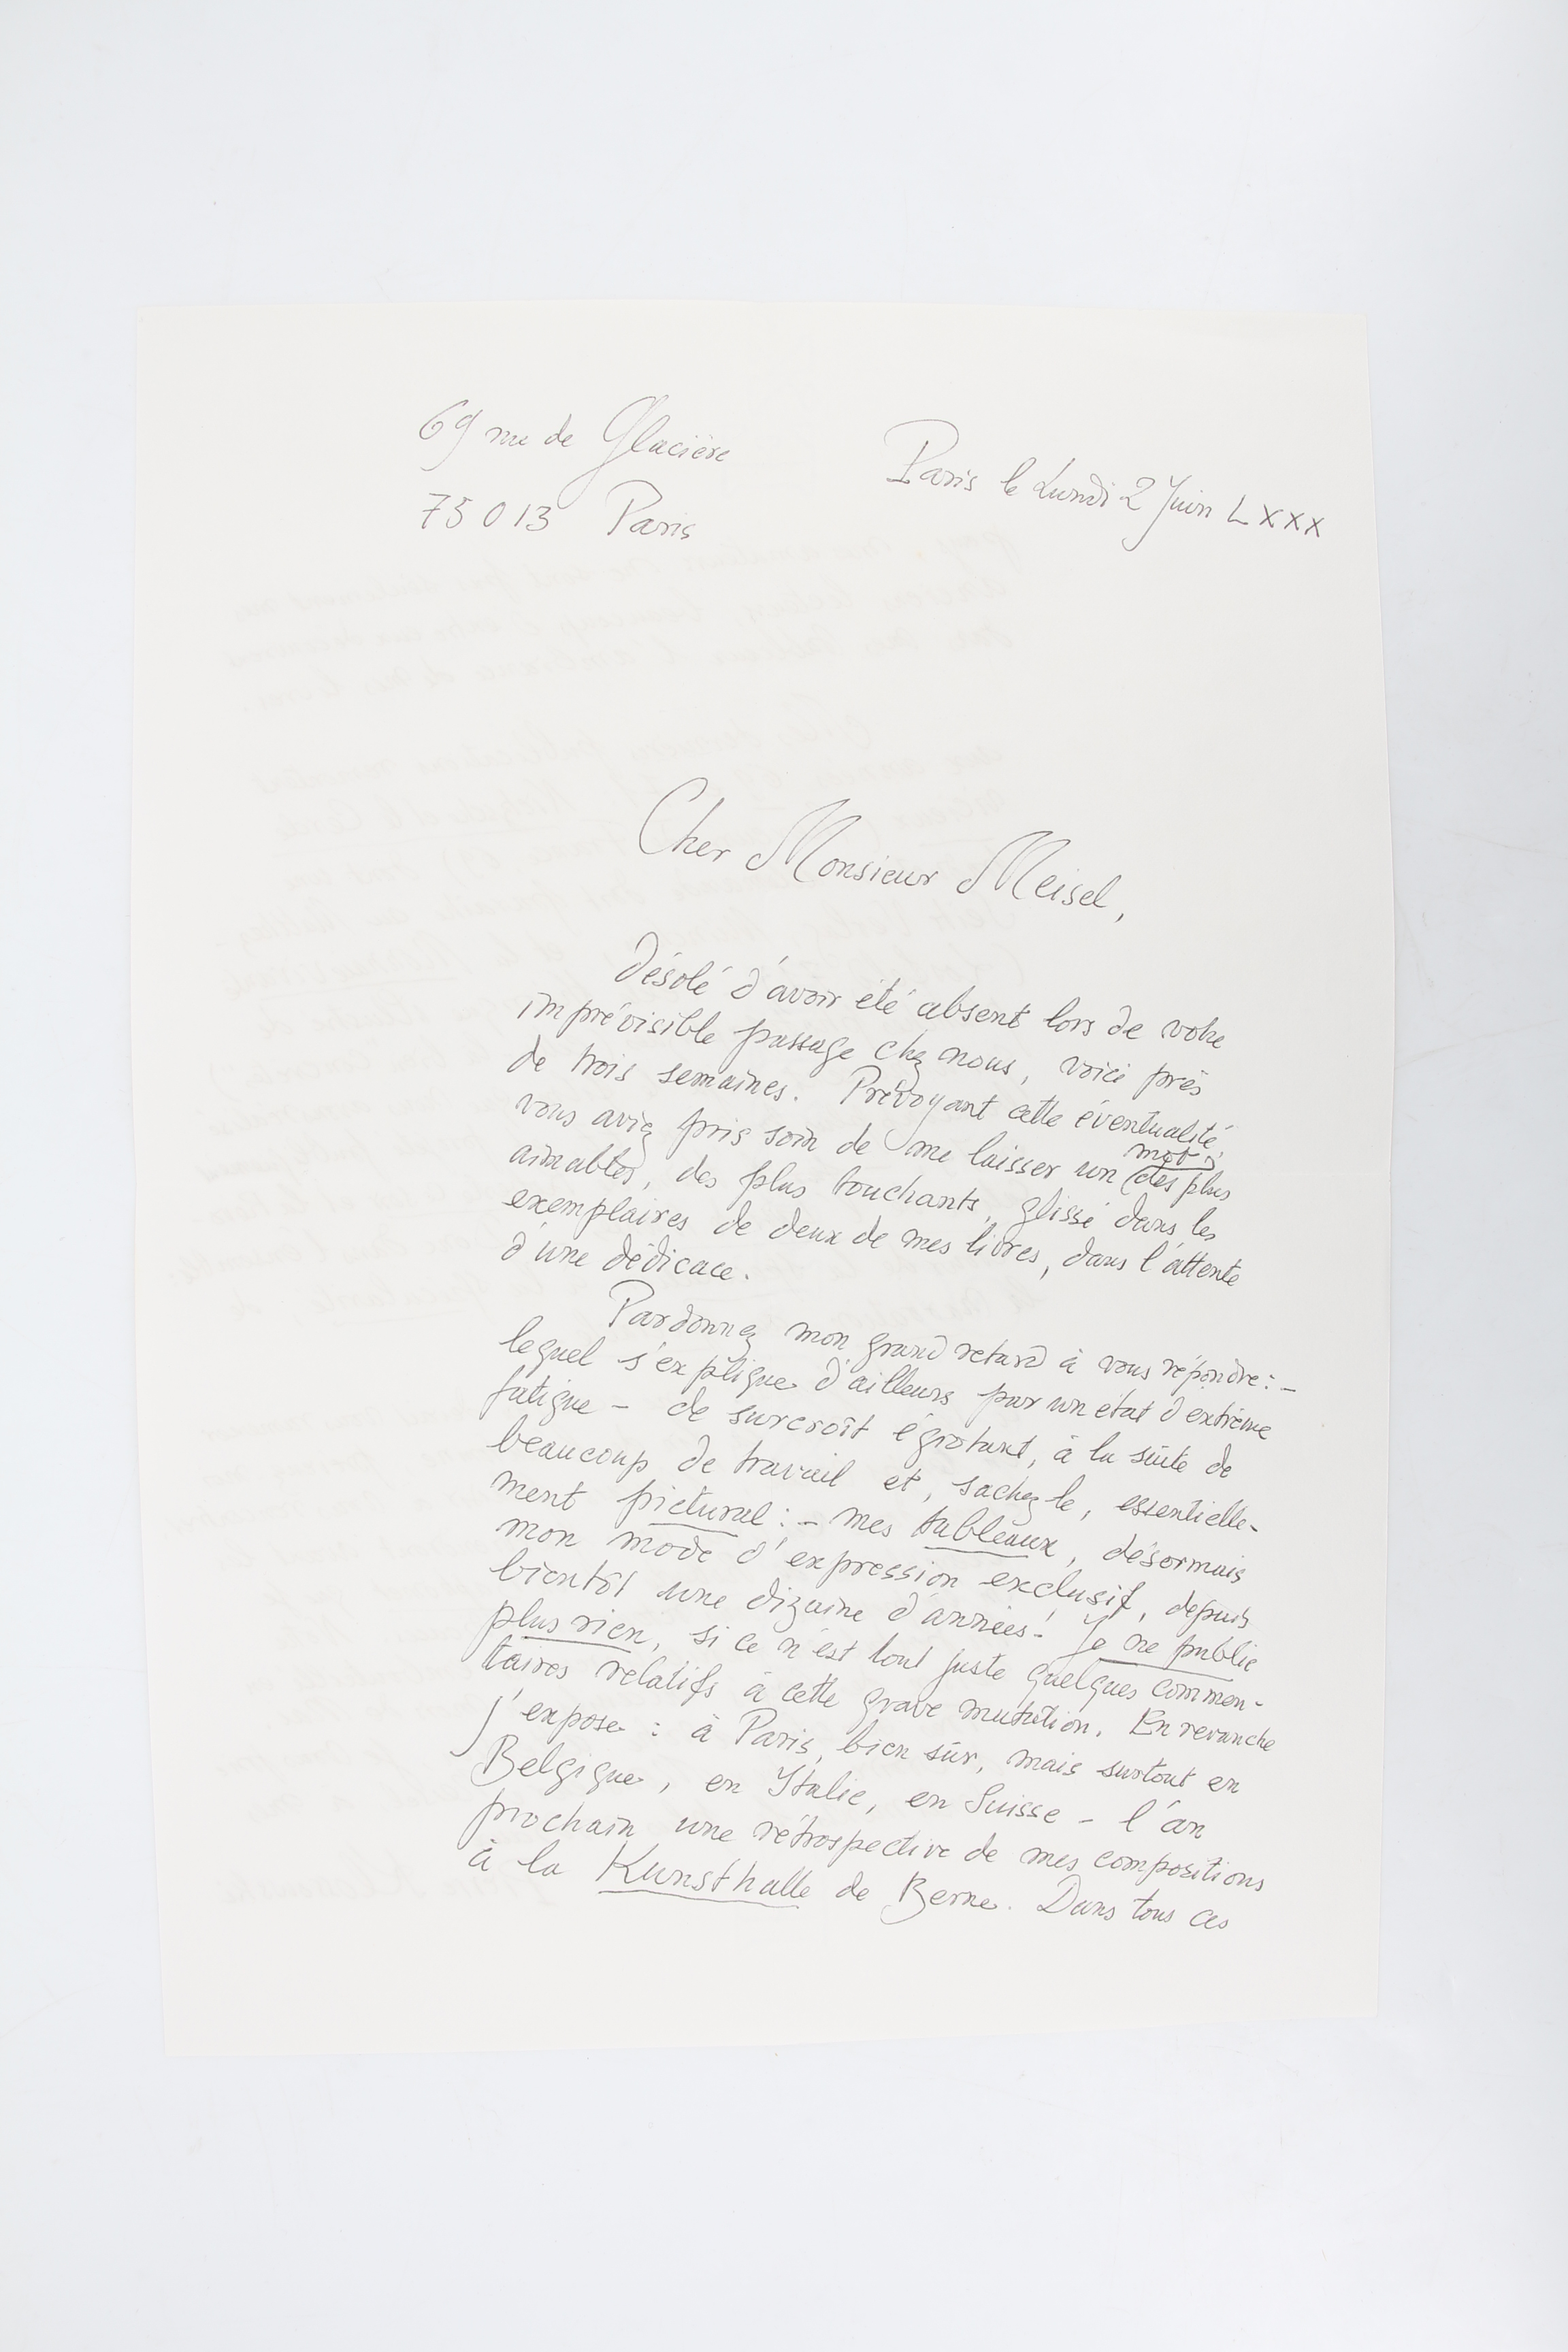 69 rue de Glacière
75013 Paris
Paris le Lundi 2 Juin LXXX
Cher Monsieur Meisel,
Désolé d'avoir été absent lors de votre
imprévisible passage chez nous, voici près
de trois semaines. Prévoyant cette éventualité
vous aviez pris soin de me laisser un mot des plus
aimables, des plus touchants, glissé dans les
exemplaires de deux de mes livres, dans l'attente
d'une dédicace.
Pardonnez mon grand retard à vous répondre : –
lequel s'explique d'ailleurs par un état d'extrême
fatigue – de surcroît égrotant, à la suite de
beaucoup de travail et, sachez le, essentielle-
ment pictural : – mes tableaux, désormais
mon mode d'expression exclusif, depuis
bientôt une dizaine d'années ! Je ne publie
plus rien, si ce n'est tout juste quelques commen-
taires relatifs à cette grave mutation. En revanche
j'expose : à Paris, bien sûr, mais surtout en
Belgique, en Italie, en Suisse – l'an
prochain une rétrospective de mes compositions
à la Kunsthalle de Berne. Dans tous ces